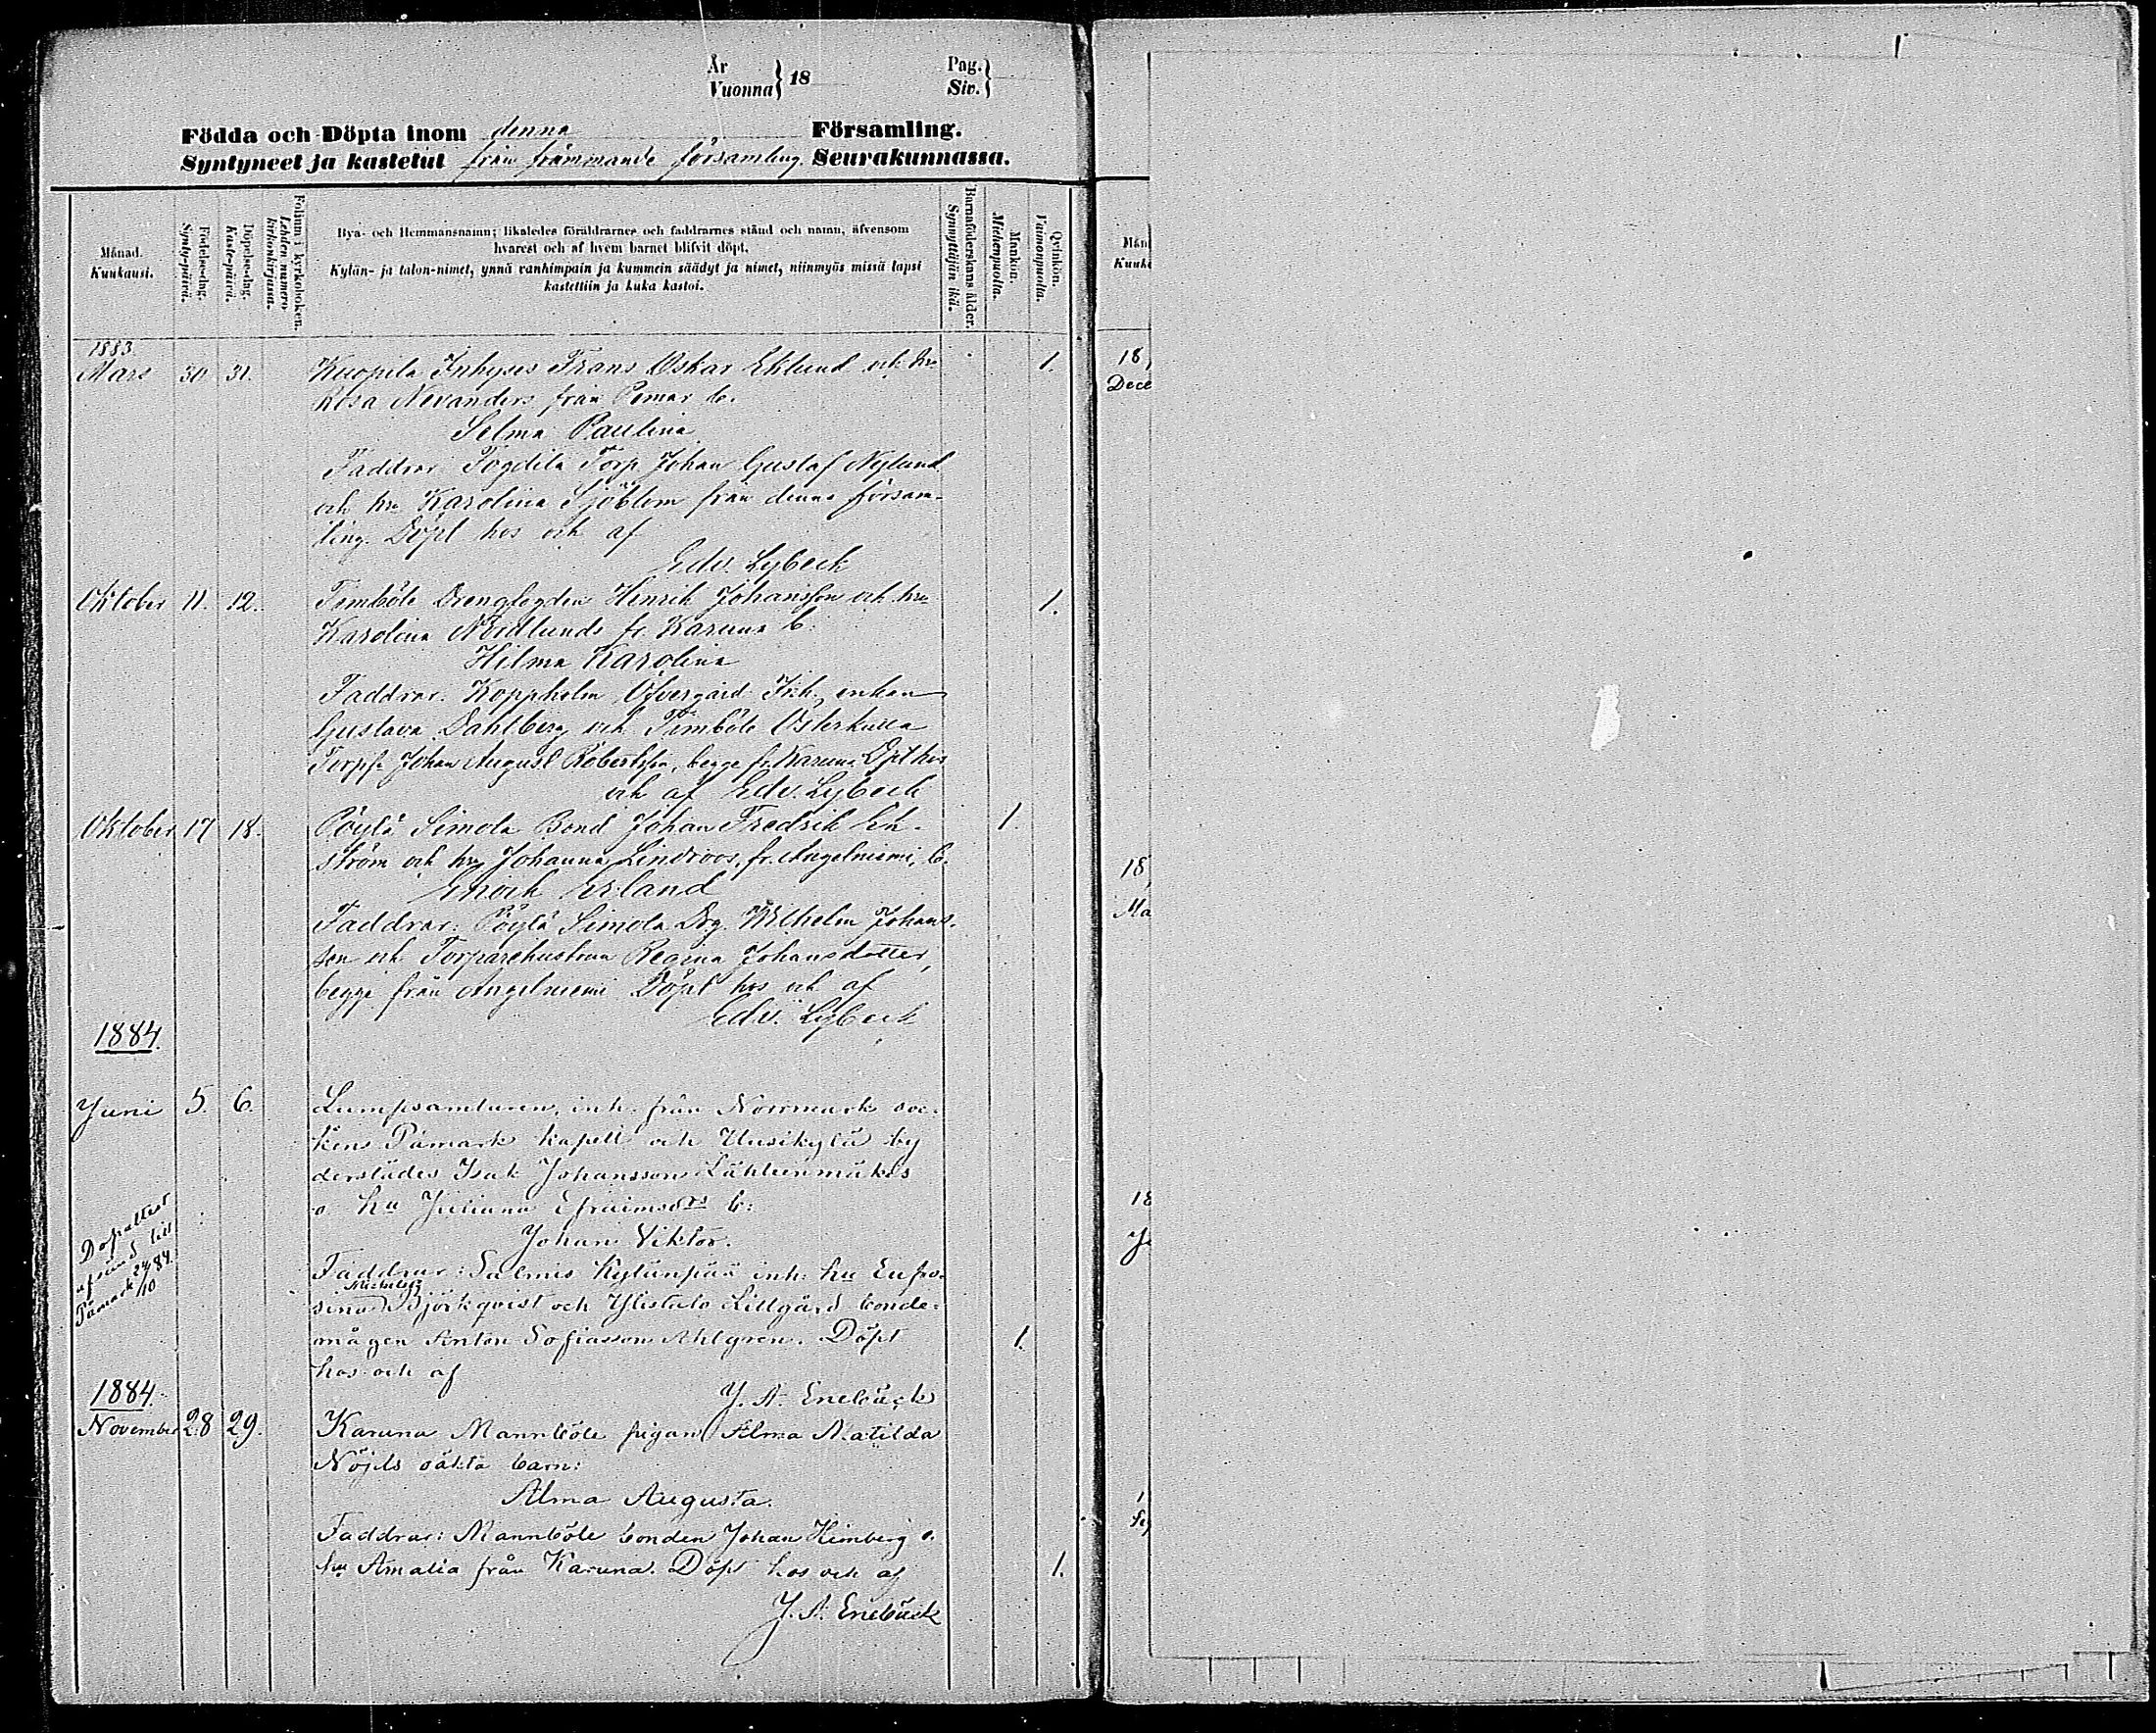 År
Vuonna } 18
Pag.
Siv. }
Födda och Döpta inom denna Församling.
Syntyneet ja kastetut från främmande församling. Seurakunnassa.
Månad.
Kuukausi.
Födelse-dag.
Synty-päivä.
Döpelse-dag.
Kaste-päivä.
Folium i kyrkoboken.
Lehden numero kirkonkirjassa.
Bya- och Hemmansnamn; likaledes föräldrarnes och faddrarnes stånd och namn, äfvensom
hvarest och af hvem barnet blifvit döpt.
Kylän- ja talon-nimet, ynnä vanhimpain ja kummein säädyt ja nimet, niinmyös missä lapsi
kastettiin ja kuka kastoi.
Barnaföderskans ålder.
Synnyttäjän ikä.
Mankön.
Miehenpuolta.
Qvinkön.
Vaimonpuolta.
1883.
Mars 30 31. Kuopila Inhyses Frans Oskar Eklund och hu 1.
Rosa Nevanders från Pemar b.
Selma Paulina
Faddrar Fogdila Torp Johan Gustaf Nylund
och hu Karolina Sjöblom från denna försam-
ling. Döpt hos och af
Edv. Lybeck
Oktober 11. 12. Timböle Drengfogden Henrik Johansson och hu 1.
Karolina Nordlunds fr. Karuna b.
Hilma Karolina
Faddrar. Koppholm Öfvergård Inh. enkan
Gustava Dahlberg och Timböle Österkulla
Torpf Johan August Robertsson, begge fr. Karuna Dpt hos
och af Edv. Lybeck
Oktober 17 18. Pöylä Simola Bond Johan Fredrik Ek- 1.
ström och hu Johanna Lindroos, fr. Angelniemi, b.
Enoch Erland
Faddrar: Pöylä Simola Drg. Wilhelm Johans-
son och Torparehustrun Regina Johansdotter,
begge från Angelniemi Döpt hos och af
Edv. Lybeck
1884.
Juni 5. 6. Lumpsamlaren, inh. från Norrmark soc-
ken Påmark kapell och Uusikylä by
derstädes Isak Johansson Lähteenmäkis
o hu Juliana Efraimsdrs b:
Johan Viktor.
Dopattest
afsänd till
Påmark 24/10 84.
Faddrar: Salmis Kylänpää inh: hu Eufro-
sina Björkqvist och Ylistalo Lillgård bonde-
mågen Anton Sofiasson Ahlgren. Döpt 1.
hos och af
J. A. Enebäck
1884.
November 28 29. Karuna Mannböle pigan Alma Matilda
Nöjds oäkta barn:
Alma Augusta.
Faddrar: Mannböle bonden Johan Heimberg o.
hu Amalia från Karuna. Döpt hos och af 1.
J. A. Enebäck
Mån
Kuuk
18
Dece
18
Ma
18